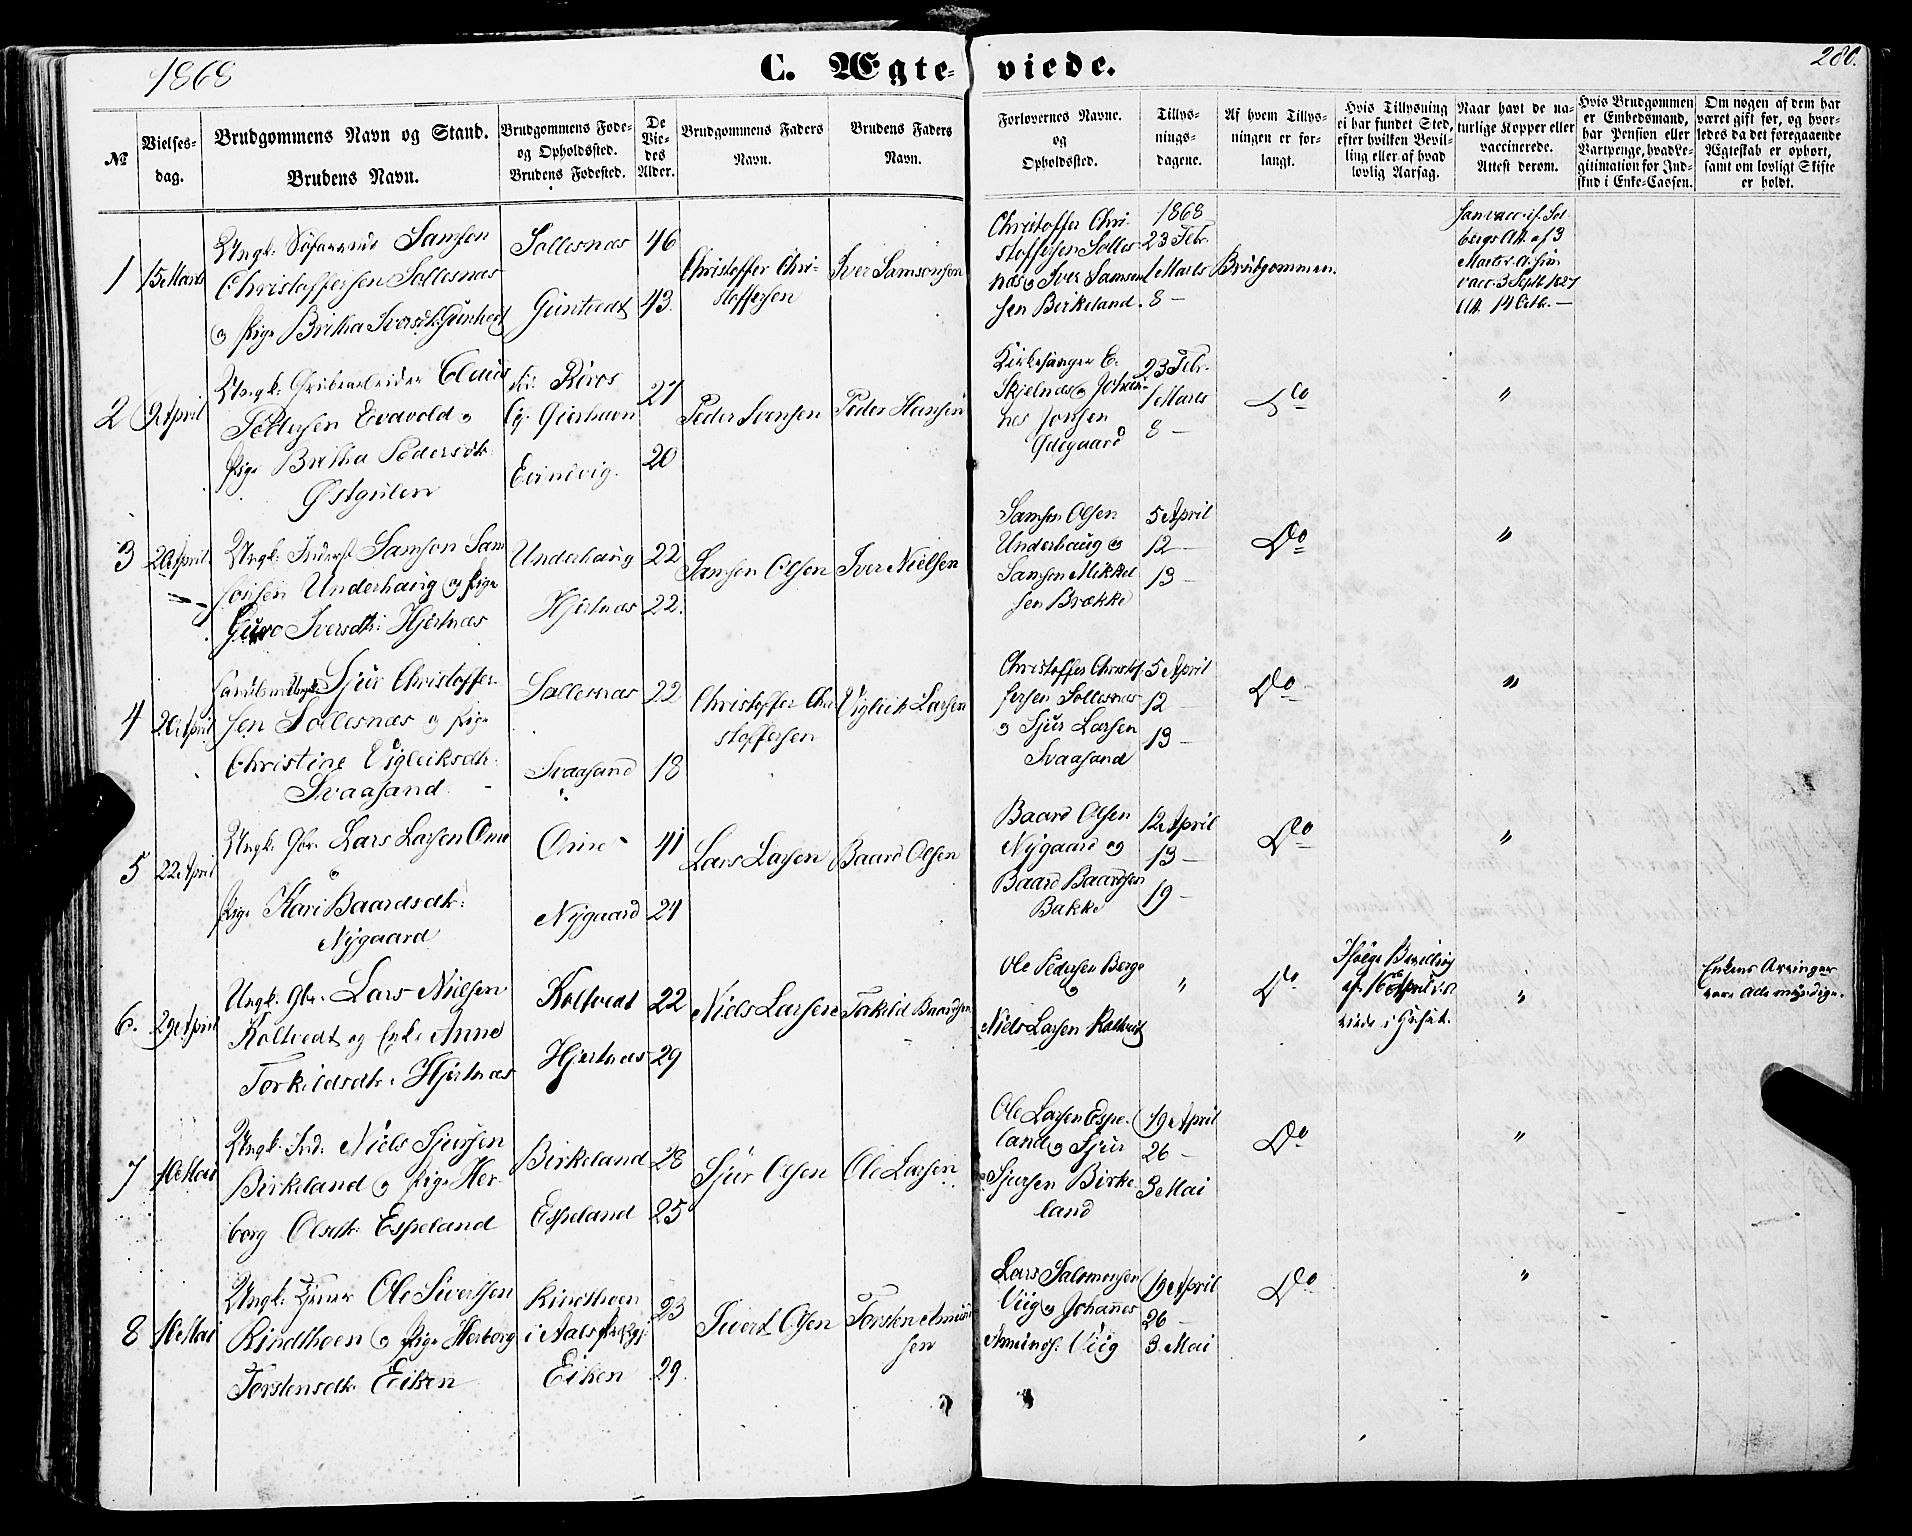 1868
C. Ægte- viede.
280.
№
Vielses-
dag.
Brudgommens Navn og Stand.
Brudens Navn.
Brudgommens Føde-
og Opholdssted.
Brudens Fødested.
De
Vie-
des
Alder.
Brudgommens Faders
Navn.
Brudens Faders
Navn.
Forlovernes Navne.
og
Opholdssted.
Tillys-
nings-
dagene.
Af hvem Tillys-
ningen er for-
langt.
Hvis Tillysning
ei har fundet Sted,
efter hvilken Bevil-
ling eller af hvad
lovlig Aarsag.
Naar havt de na-
turlige Kopper eller
vaccinerede.
Attest derom.
Hvis Brudgommen
er Embedsmand,
har Pension eller
Vartpenge, hvad Le-
gitimation for Ind-
skud i Enke-Cassen.
Om nogen af dem har
været gift før, og hvor-
ledes da det foregaaende
Ægteskab er ophørt,
samt om lovligt Skifte
er holdt.
1
15 Marts
Ungk. Samson
Christoffersen Sollesnæs
og Pige Britha Iversdtr. Guntvedt
Sollesnæs
Guntvedt
46
43.
Christoffer Chri-
stoffersen
Iver Samsonsen
Christoffer Chri-
stoffersen Solles-
næs og Iver Samson-
sen Birkeland.
1868
23 Febr.
1 Marts
8 —
Brudgommen.
Han vacc. if. Sol-
bergs Att. af 3
Marts
vacc. 3 Septb. 1827
Att. 14 Octb. —
2
9 April
Ungk. Grubearbeider Claus
Pedersen Evavold og
Pige Britha Pedersdtr.
Østgulen
Röros
Evindvig.
27
20
Peder Svensen
Peder Hansen
Kirkesanger E.
Skjelnæs og Johan-
nes Jonsen
Ødegaard
23 Febr.
1 Marts
8 —
Do
"
3
20 April
Ungk. Inderst Samson Sam-
sonsen Underhaug og Pige
Guro Iversdtr: Hjertnæs
Underhaug
Hjertnæs
22
22.
Samson Olsen
Iver Nielsen
Samson Olsen
Underhaug og
Samson Mikkel-
sen Brække
5 April
12 —
13 —
Do
"
4
20 April
Ungk. Sjur Christoffer-
sen Sollesnæs og Pige
Christine Vigleiksdtr.
Svaasand
Sollesnæs
Svaasand
22
18
Christoffer Chri-
stoffersen
Vigleik Larsen
Christoffer Christof-
fersen Sollesnæs
og Sjur Larsen
Svaasand
5 April
12
13 —
Do
"
5
22 April
Ungk. Gbr. Lars Larsen Ome
og
Pige Kari Baardsdtr:
Nygaard
Ome
Nygaard
41
24
Lars Larsen
Baard Olsen
Baard Olsen
Nygaard og
Baard Baardsen
Bakke
12 April
13 —
19 —
Do
"
6.
29 April
Ungk. Gbr. Lars Nielsen
Koltvedt og Enke Anne
Torkildsdtr. Hjertnæs
Koltvedt
Hjertnæs
22
29
Niels Larsen
Torkild Baardsen
Ole Pedersen Berge
og
Niels Larsen Koltvedt
"
Do
Ifølge Bevilling
af 16 April
viede i Huset.
"
Enkens Arvinger
vare alle myndige.
7
10 Mai
Ungk. Ind. Niels Sjursen
Birkeland og Pige Her-
borg Olsdtr. Espeland
Birkeland
Espeland
28
25
Sjur Olsen
Ole Larsen
Ole Larsen Espe-
land og Sjur
Sjursen Birke-
land
19 April
26 —
3 Mai
Do
"
8
10 Mai
Ungk. Tjener Ole Sivertsen
Rindheen og Pige Herborg
Torstensdtr. Eiken
Rindheen
i Aals Præstegj:
Eiken
23
29.
Sivert Olsen
Torsten Amund-
sen
Lars Salomonsen
Viig og Johannes
Amunds. Viig
19 April
26 —
3 Mai
Do
"